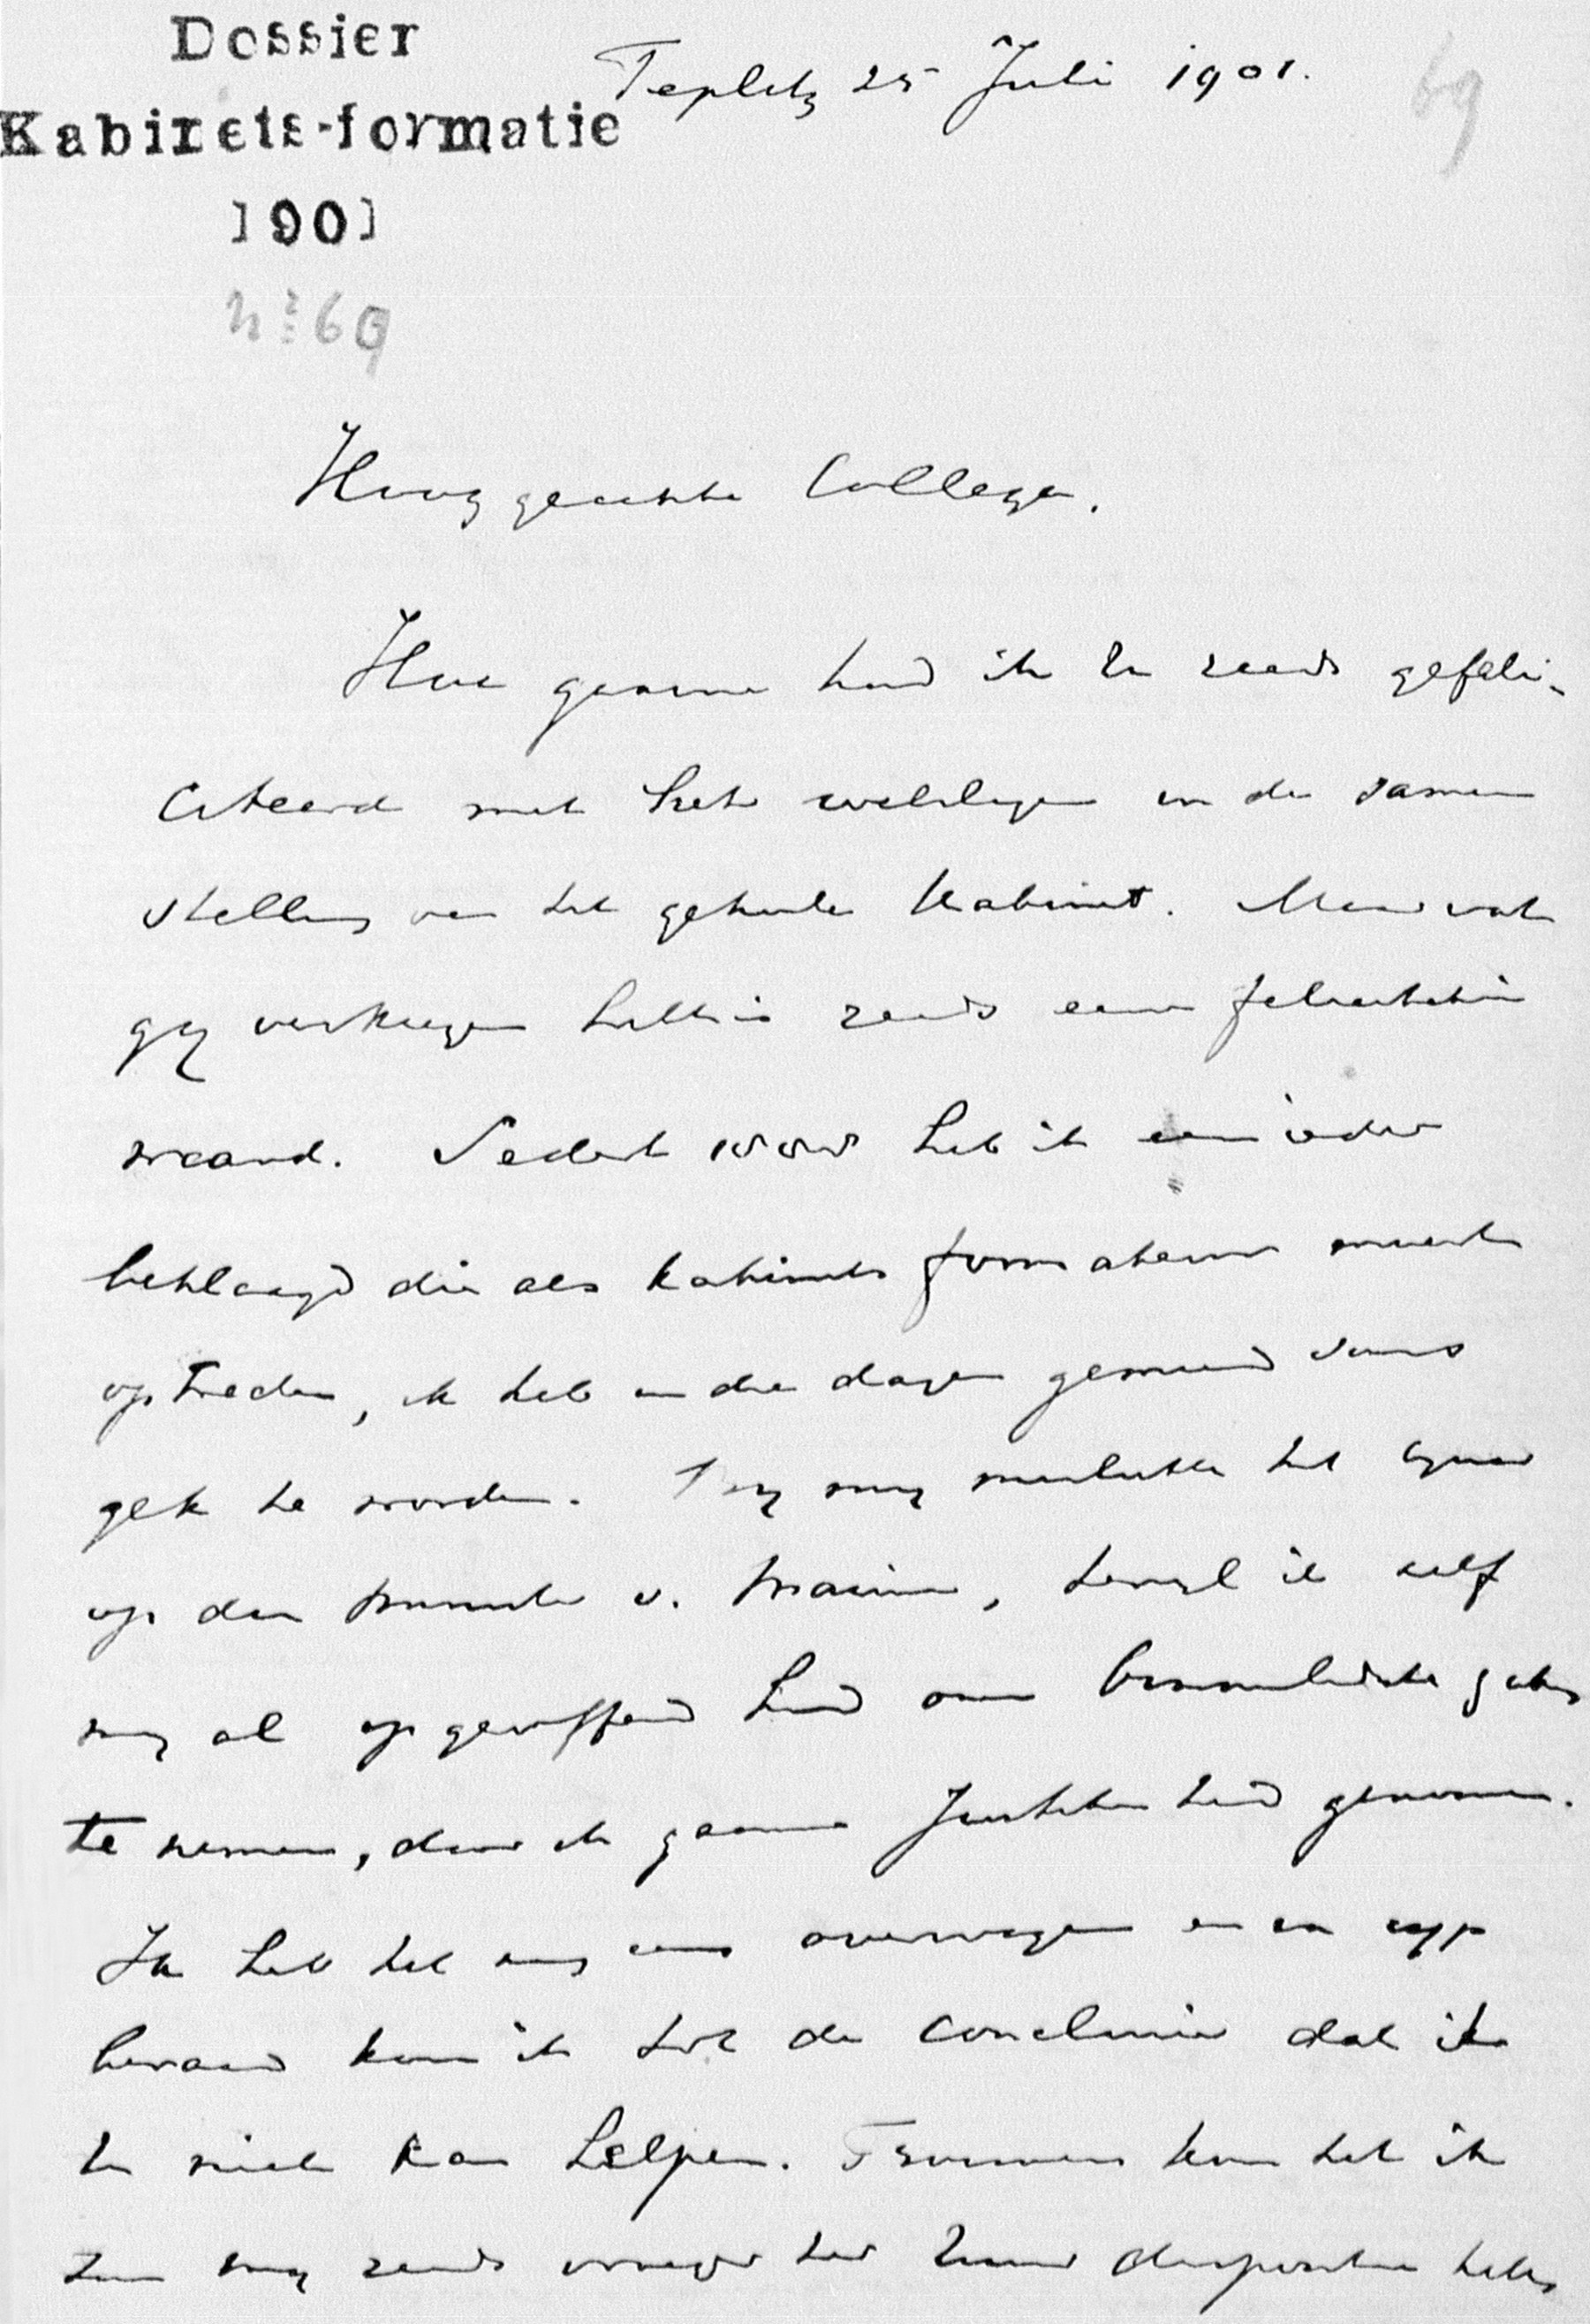 Dossier
Kabinets-formatie
1901
no 69
Teplitz 25 Juli 1901.
69
Hooggeachte Collega.
Hoe gaarne had ik U reeds gefeli-
citeerd met het welslagen in de samen
stelling van het geheele Kabinet. Maar wat
gij verkregen hebt is reeds een felicitatie
waard. Sedert 1888 heb ik een ieder
beklaagd die als kabinets formateur moest
optreden, ik heb in die dagen gemeend soms
gek te worden. Bij mij mislukte het
op den v. Marine, terwijl ik zelf
mij al opgeofferd had om
te nemen, daar ik gaarne Justitie had genomen.
Ik heb het nog eens overwogen en en
beraad kom ik tot de conclusie dat ik
U niet kan helpen. Trouwens kon het ik
zou mij reeds vroeger ter Uwer dispositie hebben